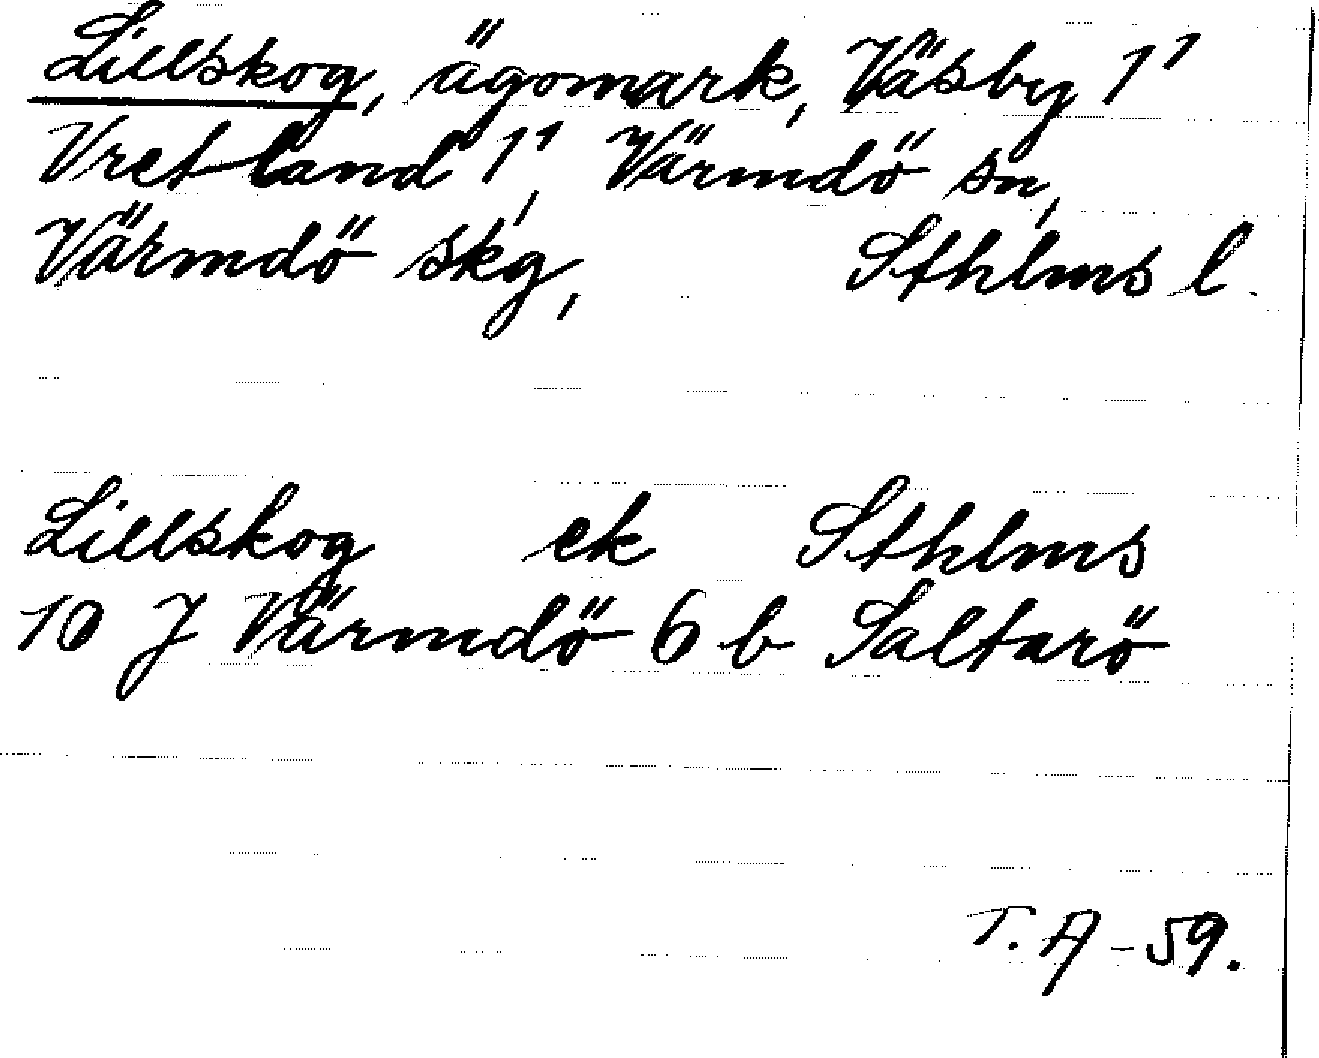 Lillskog, ägomark, Väsby 1¹
Vretland 1¹, Värmdö sn,
Värmdö skg, Sthlms l.
Lillskog ek Sthlms
10 J Värmdö 6 b Saltarö
T. A - 59.